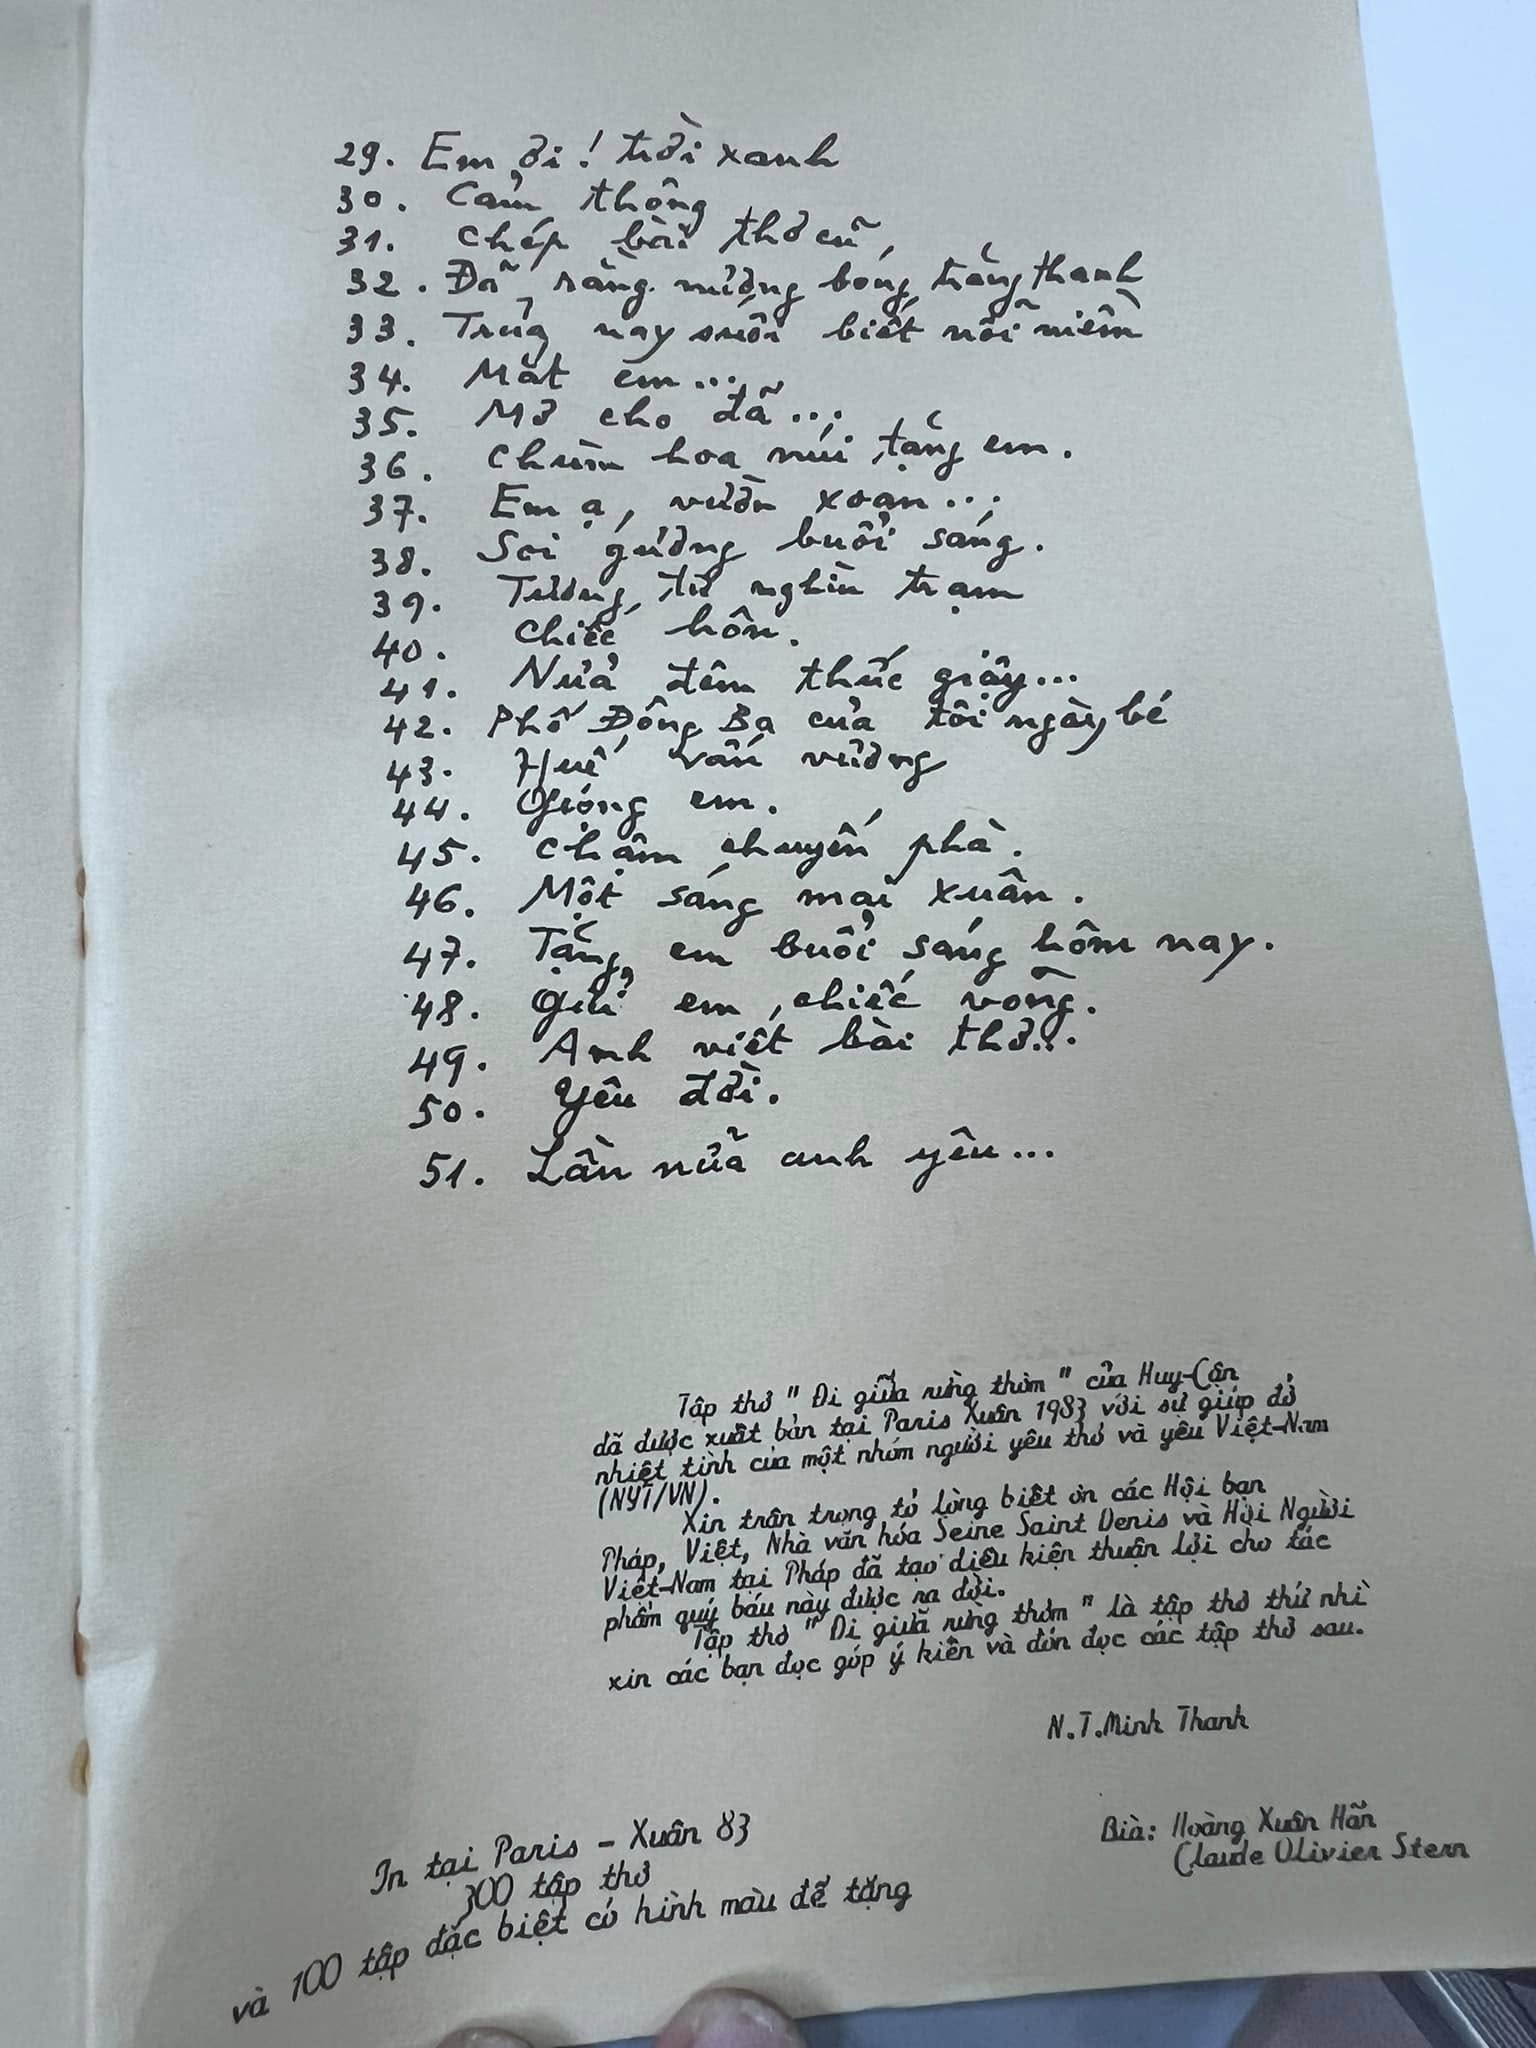 29. Em ơi! trời xanh
30. Cảm thông
31. Chép bài thơ cũ
32. Đã rằng mượng bóng trăng thanh
33. Trưa nay suối biết nỗi niềm
34. Mắt em...
35. Mơ cho đã...
36. Chùm hoa núi tặng em.
37. Em ạ, vườn xoan...
38. Soi gương buổi sáng.
39. Tương tư nghìn trạm
40. Chiếc hôn.
41. Nửa đêm thức giấy...
42. Phố Đông Ba của tôi ngày bé
43. Huế vấn vương
44. Giọng em.
45. Chậm chuyến phà.
46. Một sáng mai xuân.
47. Tặng em buổi sáng hôm nay.
48. Gửi em chiếc võng.
49. Anh viết bài thơ...
50. Yêu đời.
51. Lần nữa anh yêu...
Tập thơ " Đi giữa rừng thơm " của Huy-Cận
đã được xuất bản tại Paris Xuân 1983 với sự giúp đỡ
nhiệt tình của một nhóm người yêu thơ và yêu Việt-Nam
(NYT/VN).
Xin trân trọng tỏ lòng biết ơn các Hội bạn
Pháp, Việt, Nhà văn hóa Seine Saint Denis và Hội Người
Việt-Nam tại Pháp đã tạo điều kiện thuận lợi cho tác
phẩm quý báu này được ra đời.
Tập thơ " Đi giữa rừng thơm " là tập thơ thứ nhì
xin các bạn đọc góp ý kiến và đón đọc các tập thơ sau.
N.T.Minh Thanh
Bìa: Hoàng Xuân Hãn
Claude Olivier Stern
In tại Paris - Xuân 83
300 tập thơ
và 100 tập đặc biệt có hình màu để tặng